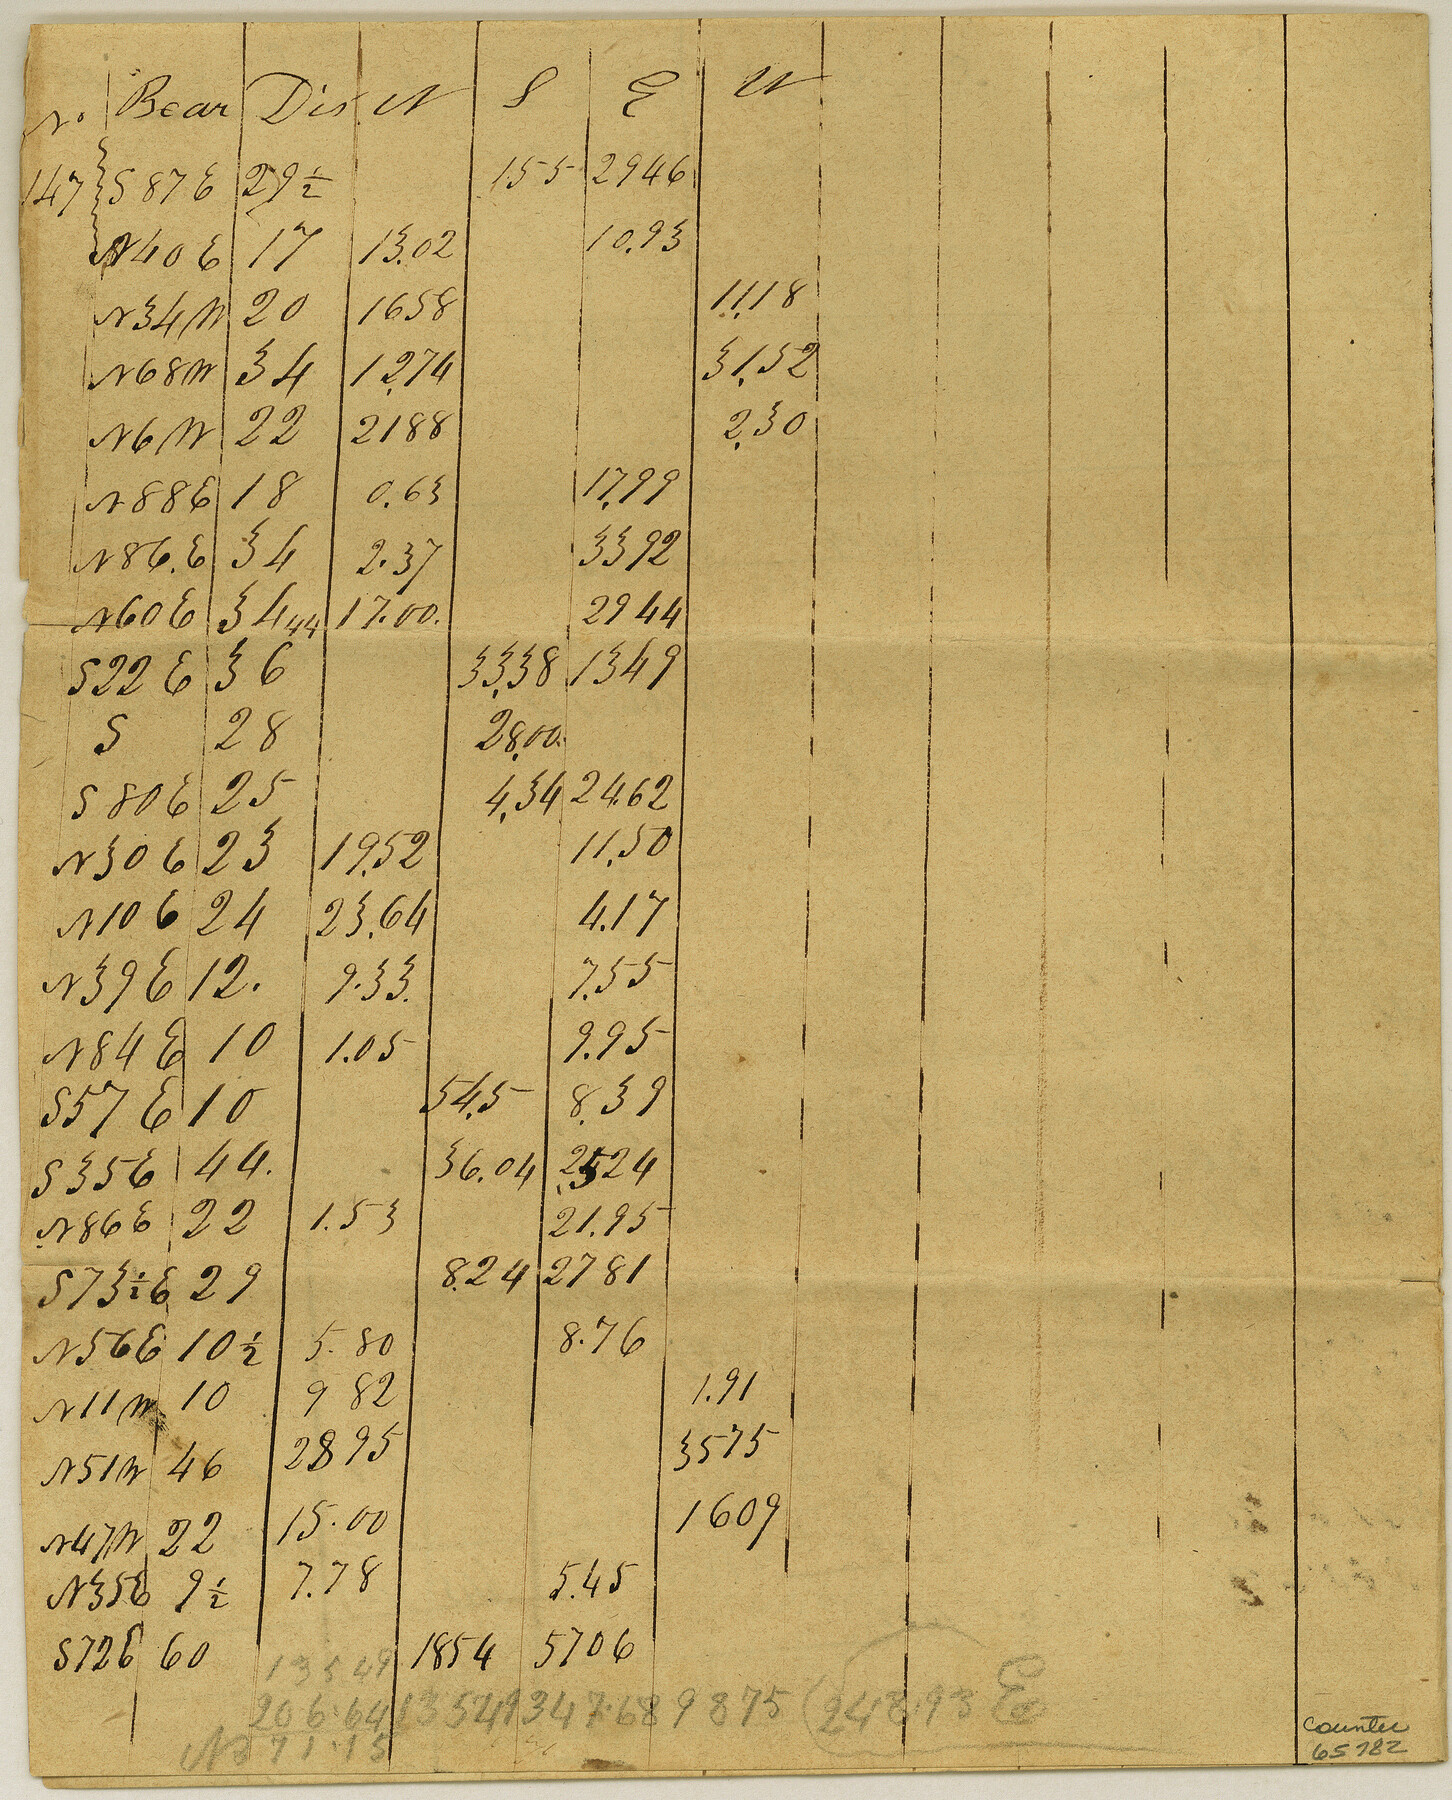 No Bear Dis N S E W
147 S 87 E 29½ 155 2946
N40 E 17 13.02 10.93
N34W 20 1658 11.18
N68W 34 12.74 31.52
N6W 22 2188 2.30
N88E 18 0.63 17.99
N86.E 34 2.37 3392
N60E 34 44 17.00. 2944
S22E 36 33.38 1349
S 28 28.00.
S 80E 25 4.34 24.62
N30E 23 19.52 11.50
N10 E 24 23.64 4.17
N39E 12. 9.33. 7.55
N84E 10 1.05 9.95
S57E 10 54.5 8.39
S35E 44. 36.04 2524
N86E 22 1.53 21.95
S73½E 29 8.24 2781
N56E 10½ 5.80 8.76
N11W 10 9 82 1.91
N51W 46 2895 3575
N47W 22 15.00 1609
N35E 9½ 7.78 5.45
S72E 60 1854 5706
135 49
206.64 13549 347.68 9875 (248.93 E
N 71.15
Counter
65782